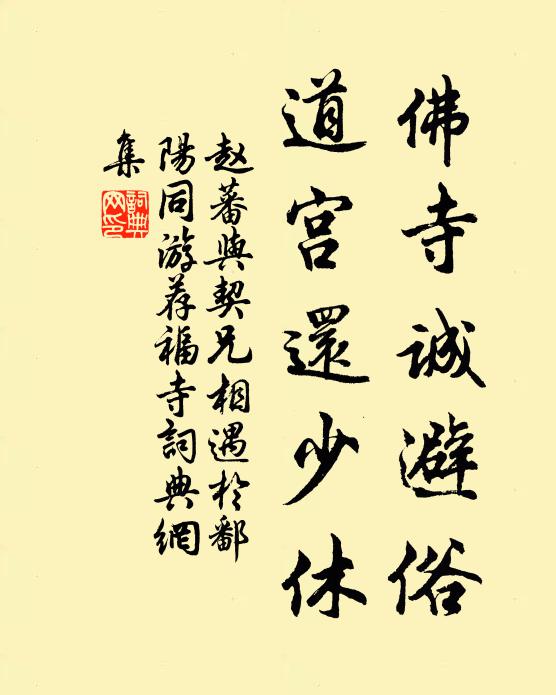 佛寺誠避俗
道宫還少休
赵蕃與契兄相遇於鄱
陽同游荐福寺詞典網
集
詞典網印